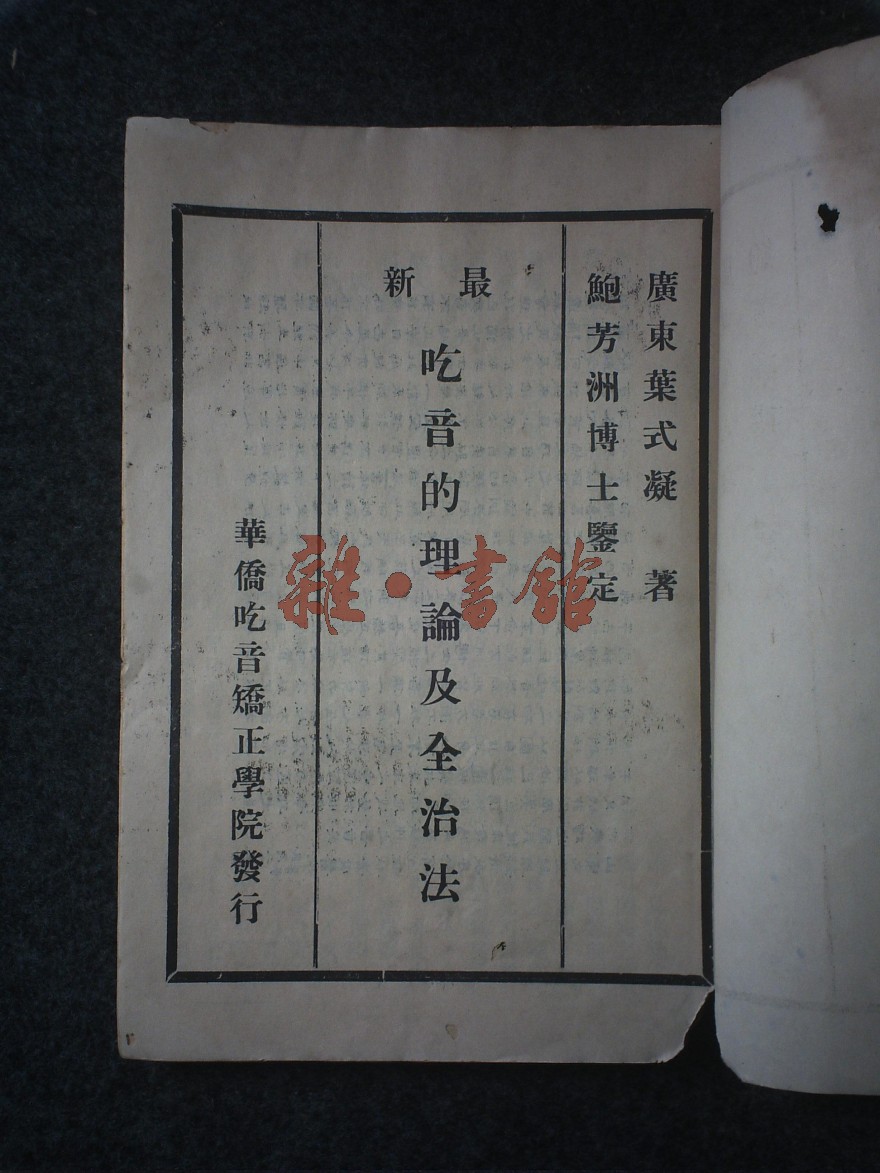 廣東葉式凝 著
鮑芳洲博士鑒定
最新
吃音的理論及全治法
華僑吃音矯正學院發行
雜·書館